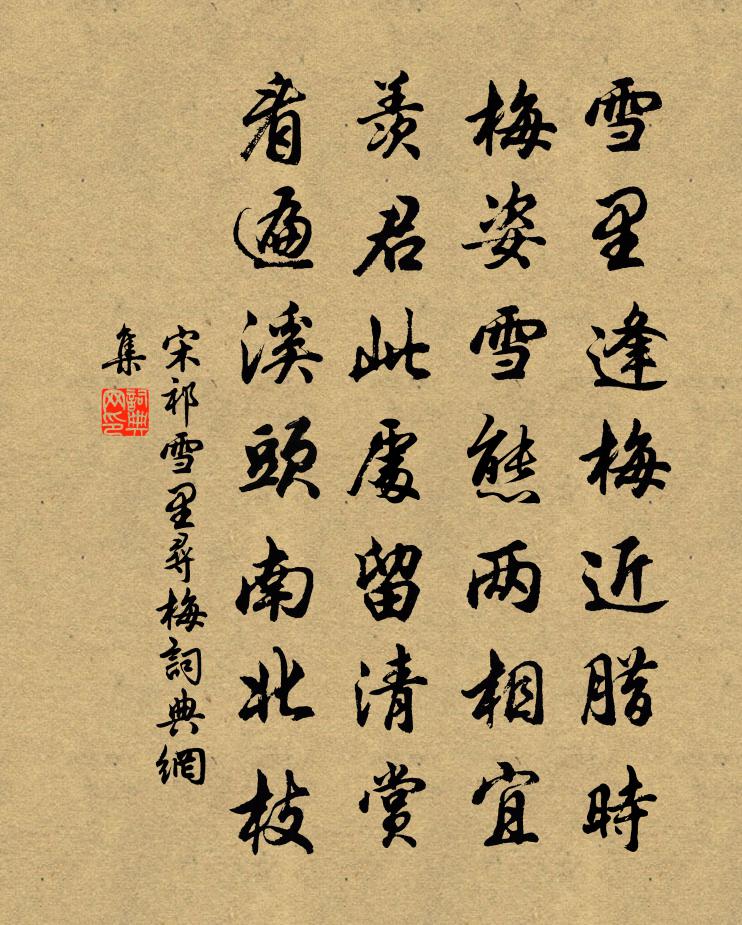 雪里逢梅近腊時
梅姿雪態两相宜
羡君此處留清賞
看遍溪頭南北枝
宋祁雪里尋梅詞典網
集
詞典
网印